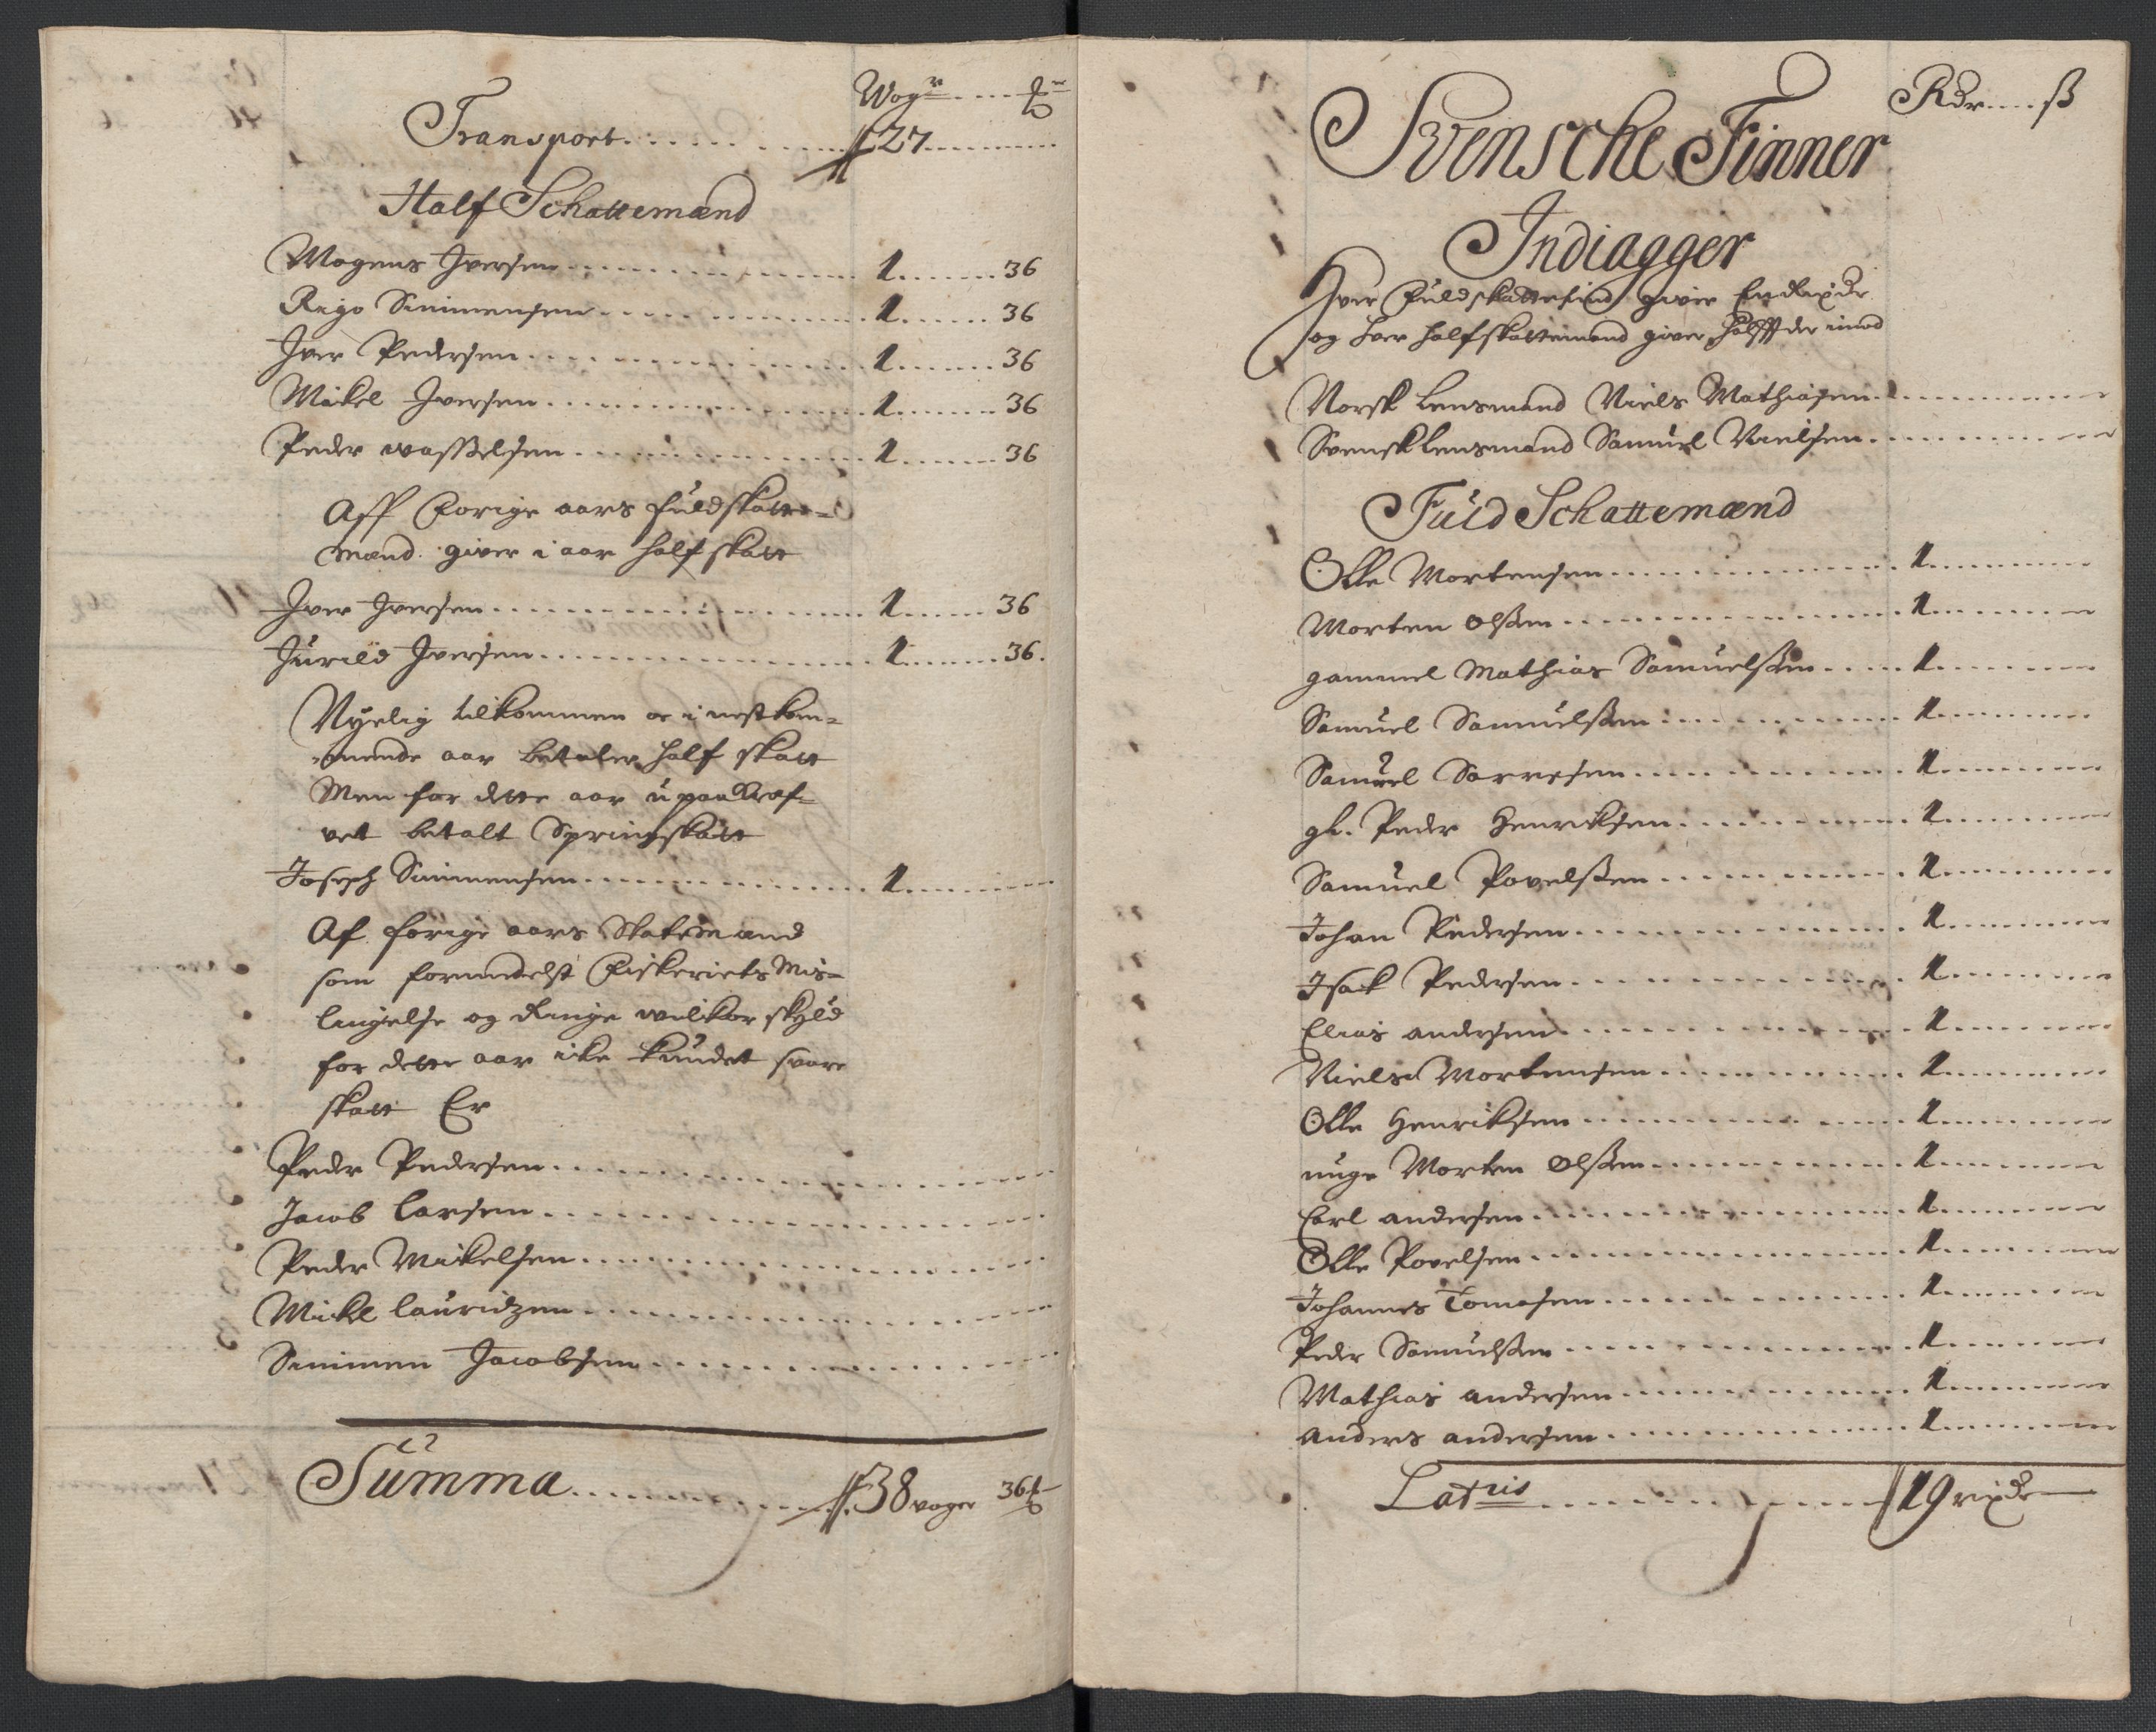 Wogr .... ℔
Transport. . . . . . . . . . . 27
Half Schattemænd
Mogens Iversen . . . . . . . 1 . . . . 36
Rigo Simmensen . . . . . . . 1 . . . . 36
Iver Pedersen . . . . . . . 1 . . . . 36
Mikel Iversen . . . . . . . 1 . . . . 36
Peder wasselsen . . . . . . . 1 . . . . 36
Aff Forige aars Fuldskatte-
mænd giver i aar half skatt
Iver Iversen . . . . . . . 1 . . . . 36
Jurild Iversen . . . . . . . 1 . . . . 36.
Nyelig tilkommen oc i nestkom-
mende aar betaler half skatt
Men for dette aar upaakræf-
vet betalt Springskatt
Joseph Simmensen . . . . . . . 1 . . . .
Af forige aars Skattemænd
som formedelst Fiskeriets Mis-
lingelse og Ringe wilkor skyld
for dette aar icke kundet svare
skatt Er
Peder Pedersen . . . . . . .
Jacob Larsen . . . . . . .
Peder Mikelsen . . . . . . .
Mikel Lauridzen . . . . . . .
Simmen Jacobsen . . . . . . .
Summa . . . . . . . 38 voger 36 ℔
Rdr .... ß
Svensche Finner
Indiagger
Hver Fuldskattefind giver En Rixdr
og hver halfskattemand giver halff der imod
Norsk Lensmand Niels Mathiasen . . . . . . .
Svensk Lensmand Samuel Nielsen . . . . . . .
Fuld Schattemænd
Olle Mortensen . . . . . . . 1 . . . .
Morten Olsen . . . . . . . 1 . . . .
gammel Mathias Samuelsen . . . . 1 . . . .
Samuel Samuelsen . . . . . . . 1 . . . .
Samuel Sarresen . . . . . . . 1 . . . .
gl. Peder Henriksen . . . . . . . 1 . . . .
Samuel Povelsen . . . . . . . 1 . . . .
Johan Pedersen . . . . . . . 1 . . . .
Isack Pedersen . . . . . . . 1 . . . .
Elias andersen . . . . . . . 1 . . . .
Niels Mortensen . . . . . . . 1 . . . .
Olle Henriksen . . . . . . . 1 . . . .
unge Morten Olsen . . . . . . . 1 . . . .
Carl andersen . . . . . . . 1 . . . .
Olle Povelsen . . . . . . . 1 . . . .
Johannes Tomasen . . . . . . . 1 . . . .
Peder Samuelsen . . . . . . . 1 . . . .
Mathias andersen . . . . . . . 1 . . . .
anders andersen . . . . . . . 1 . . . .
Lateris . . . . . . . 19 rixdr